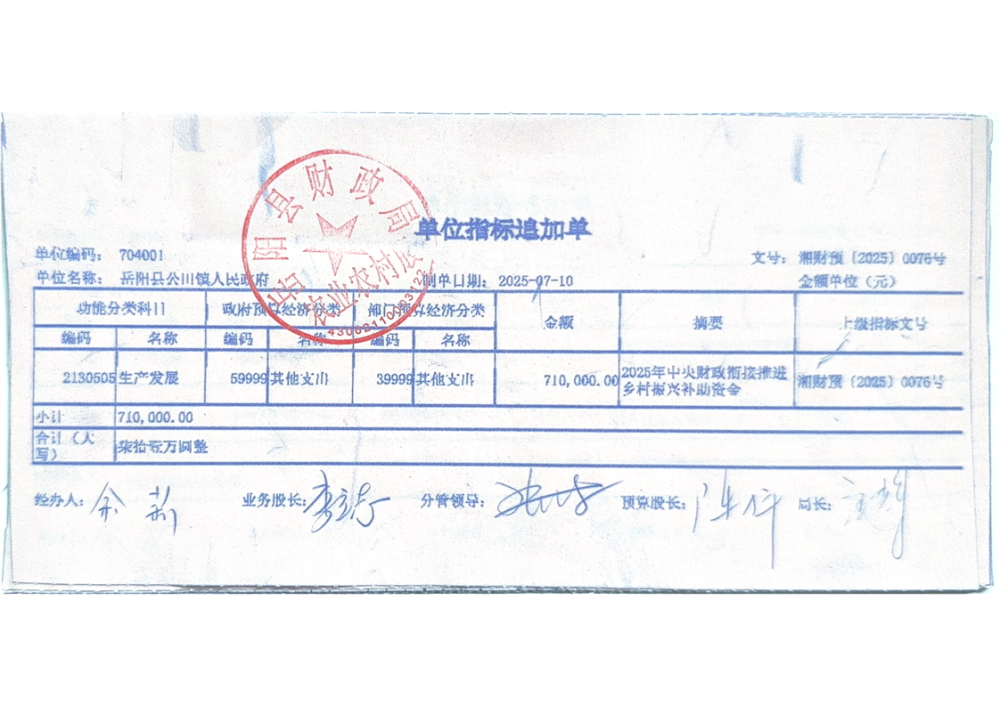 岳阳县财政局
农业农村股
单位指标追加单
单位编码： 704001
文号： 湘财预〔2025〕0076号
单位名称： 岳阳县公田镇人民政府
制单日期： 2025-07-10
金额单位（元）
功能分类科目 政府预算经济分类 部门预算经济分类 金额 摘要 上级指标文号
编码 名称 编码 名称 编码 名称
2130505 生产发展 59999 其他支出 39999 其他支出 710,000.00 2025年中央财政衔接推进乡村振兴补助资金 湘财预〔2025〕0076号
小计 710,000.00
合计（大写） 柒拾壹万圆整
经办人： 余莉 业务股长： 分管领导： 预算股长： 局长：